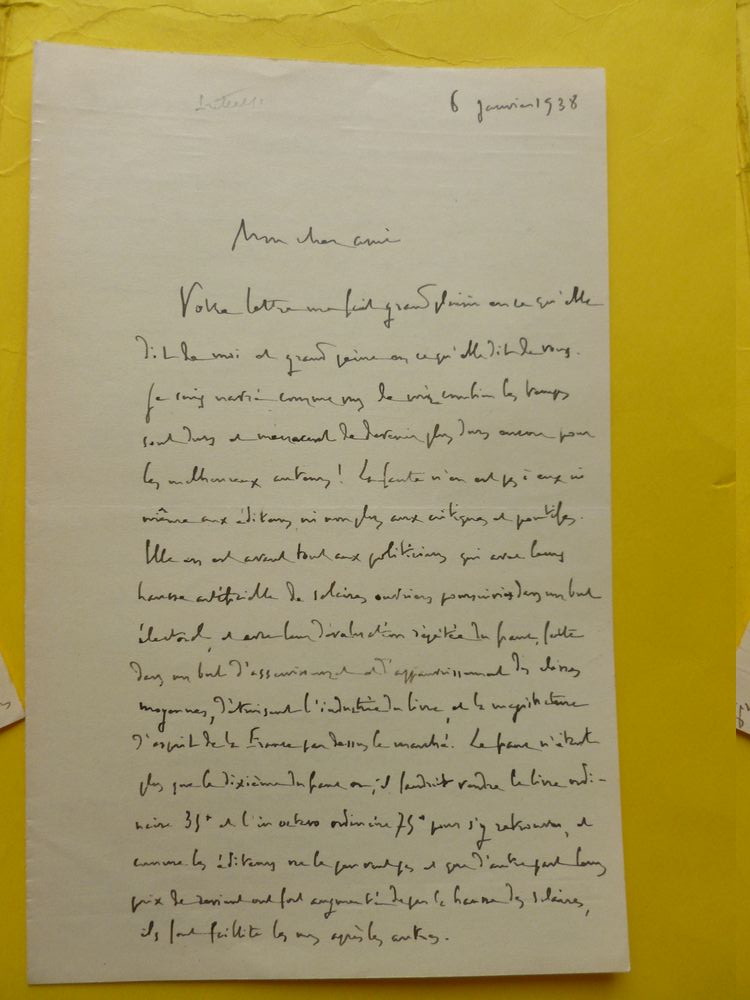 6 janvier 1938
Mon cher ami
Votre lettre me fait grand plaisir en ce qu'elle
dit de moi et grand peine en ce qu'elle dit de vous.
Je suis navré comme vous de voir combien les temps
sont durs et menacent de devenir plus durs encore pour
les malheureux auteurs ! La faute n'en est pas à eux ni
même aux éditeurs ni non plus aux critiques et pontifes.
Elle en est avant tout aux politiciens qui avec leurs
hausse artificielle de salaires ouvriers poursuivies dans un but
électoral, et avec leur dévaluation répétée du franc, faite
dans un but d'asservissement et d'appauvrissement des classes
moyennes, détruisent l'industrie du livre, et la magistrature
d'esprit de la France par dessus le marché. Le franc n'étant
plus que le dixième du franc or, il faudrait vendre le livre ordi-
naire 35f et l'in octavo ordinaire 75f pour s'y retrouver, et
comme les éditeurs ne le peuvent pas et que d'autre part leurs
prix de revient ont fort augmenté depuis la hausse des salaires,
ils font faillite les uns après les autres.